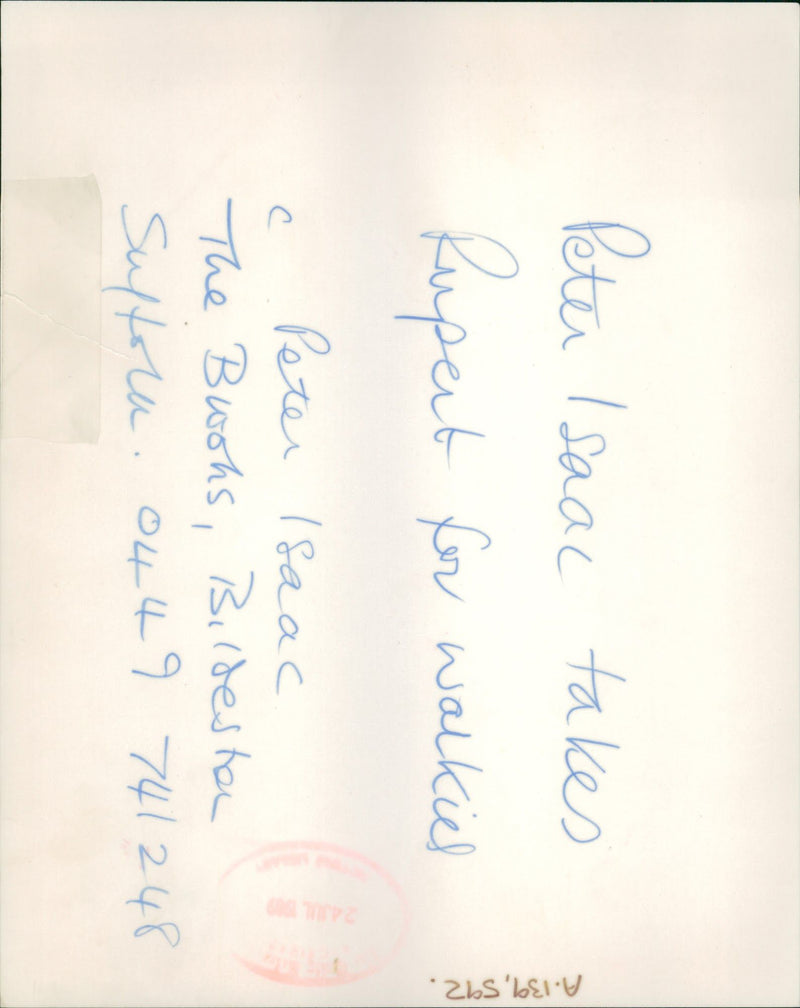 Peter Isaac takes
Rupert for walkies
c Peter Isaac
The Brooks, Bildeston
Suffolk. 0449 741248
24 JUL 1989
A.139,592.